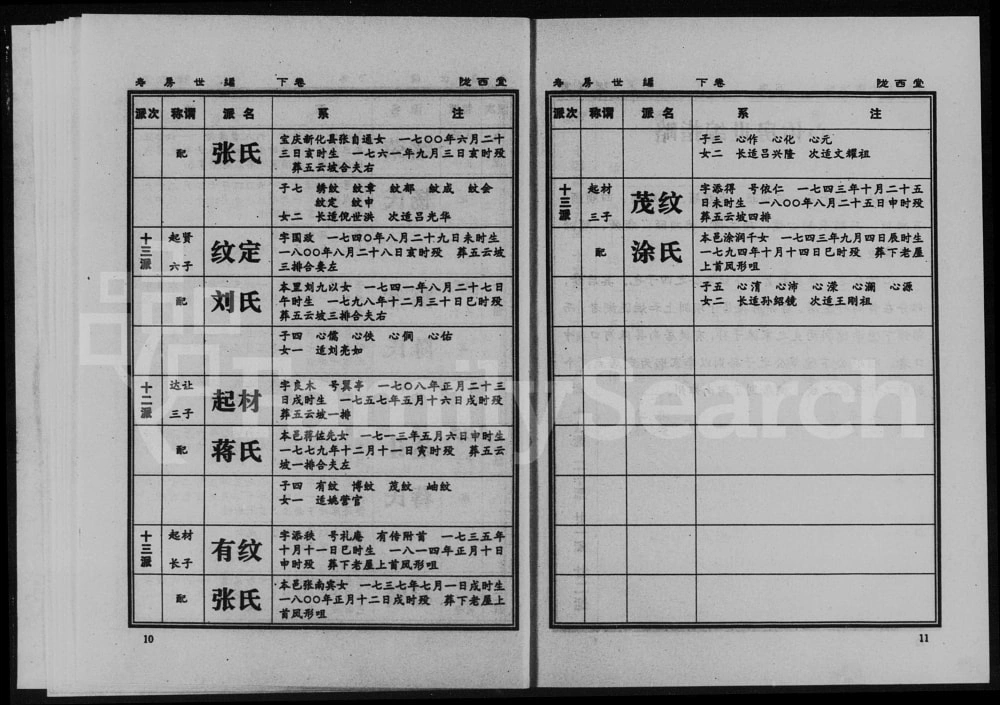 寿房世编 下卷 陇西堂
派次 称谓 派名 系 注
配 张氏 宝庆新化县张自通女 一七〇〇年六月二十
三日亥时生 一七六一年九月三日亥时殁
葬五云坡合夫右
子七 绣纹 纹章 纹郁 纹成 纹会
纹定 纹申
女二 长适倪世洪 次适吕光华
十三派 起贤六子 纹定 字国政 一七四〇年八月二十九日未时生
一八〇〇年八月二十八日亥时殁 葬五云坡
三排合妻左
配 刘氏 本里刘九以女 一七四一年八月二十七日
午时生 一七九八年十二月三十日巳时殁
葬五云坡三排合夫右
子四 心儒 心佚 心侗 心佑
女一 适刘亮如
十二派 达让三子 起材 字良木 号翼亭 一七〇八年正月二十三
日戌时生 一七五七年五月十六日戌时殁
葬五云坡一排
配 蒋氏 本邑蒋佐先女 一七一三年五月六日申时生
一七七九年十二月十一日寅时殁 葬五云
坡一排合夫左
子四 有纹 博纹 茂纹 岫纹
女一 适姚营官
十三派 起材长子 有纹 字添秩 号礼庵 有传附首 一七三五年
十月十一日巳时生 一八一四年正月十日
申时殁 葬下老屋上首凤形咀
配 张氏 本邑张南宾女 一七三七年七月一日戌时生
一八〇〇年正月十二日戌时殁 葬下老屋上
首凤形咀
10
寿房世编 下卷 陇西堂
派次 称谓 派名 系 注
子三 心作 心化 心元
女二 长适吕兴隆 次适文耀祖
十三派 起材三子 茂纹 字添得 号依仁 一七四三年十月二十五
日未时生 一八〇〇年八月二十五日申时殁
葬五云坡四排
配 涂氏 本邑涂润千女 一七四三年九月四日辰时生
一七九四年十月十四日巳时殁 葬下老屋
上首凤形咀
子五 心淯 心沛 心濚 心澜 心源
女二 长适孙绍镜 次适王刚祖
11
FamilySearch